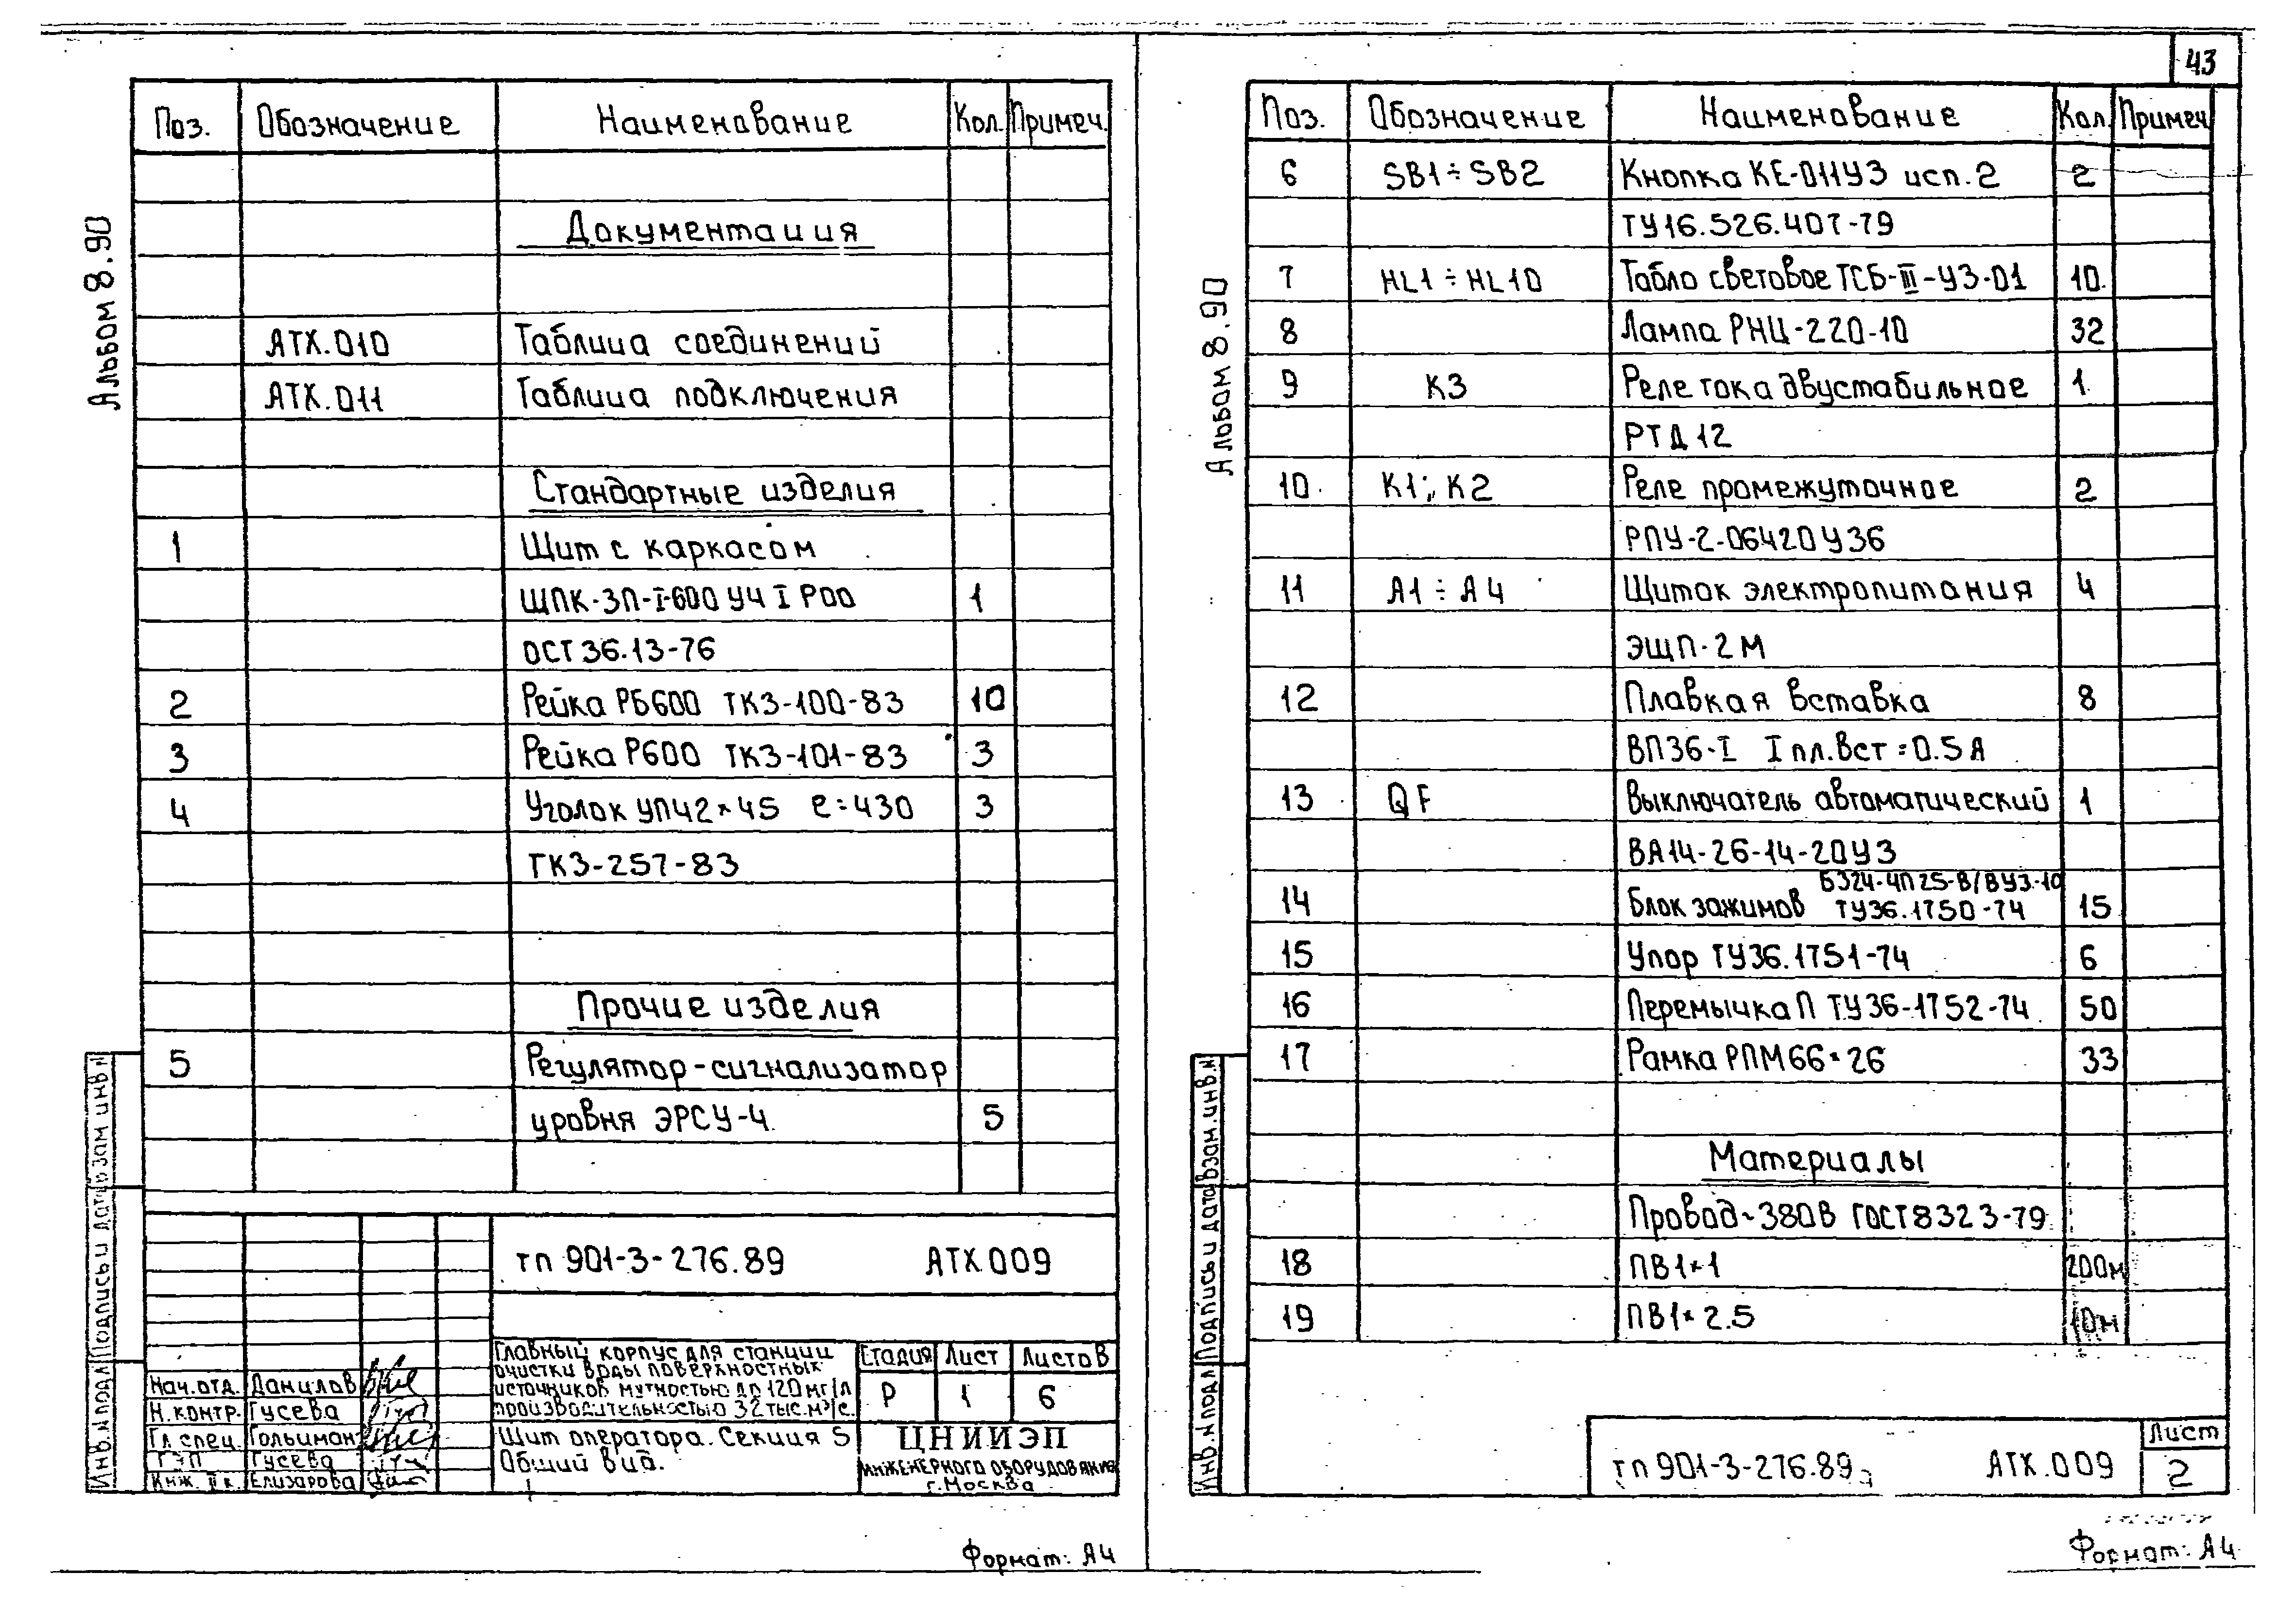 43
Альбом 8.90
Поз. Обозначение Наименование Кол. Примеч.
Документация
АТХ.010 Таблица соединений
АТХ.011 Таблица подключения
Стандартные изделия
1 Щит с каркасом
ЩПК-ЗП-I-600 У4 I Р00 1
ОСТ 36.13-76
2 Рейка РБ600 ТК3-100-83 10
3 Рейка Р600 ТК3-101-83 3
4 Уголок УП42×45 ℓ=430 3
ТК3-257-83
Прочие изделия
5 Регулятор-сигнализатор
уровня ЭРСУ-4 5
тп 901-3-276.89 АТХ.009
Главный корпус для станции
очистки воды поверхностных
источников мутностью до 120 мг/л
производительностью 32 тыс. м³/с.
Стадия Лист Листов
Р 1 6
Нач.отд. Данилов
Н.контр. Гусева
Гл.спец. Гольцман
ГЭП Гусева
Инж. IIк. Елизарова
Щит оператора. Секция 5
Общий вид.
ЦНИИЭП
инженерного оборудования
г.Москва
Инв.№подл Подпись и дата Взам инв №
Формат: А4
Альбом 8.90
Поз. Обозначение Наименование Кол. Примеч
6 SB1÷SB2 Кнопка КЕ-011У3 исп.2 2
ТУ16.526.407-79
7 HL1÷HL10 Табло световое ТСБ-III-У3-01 10
8 Лампа РНЦ-220-10 32
9 К3 Реле тока двустабильное 1
РТД 12
10 К1; К2 Реле промежуточное 2
РПУ-2-06420У3б
11 А1÷А4 Щиток электропитания 4
ЭЩП-2М
12 Плавкая вставка 8
ВП3б-I I пл.вст=0.5А
13 QF Выключатель автоматический 1
ВА14-26-14-20У3
БЗ24-4П25-В/ВУ3-10
14 Блок зажимов ТУ36.1750-74 15
15 Упор ТУ36.1751-74 6
16 Перемычка П ТУ36-1752-74 50
17 Рамка РПМ 66×26 33
Материалы
Провод ~380В ГОСТ 8323-79
18 ПВ1×1 200м
19 ПВ1×2.5 10м
тп 901-3-276.89 АТХ.009
Лист
2
Инв.№подл Подпись и дата Взам.инв.№
Формат: А4